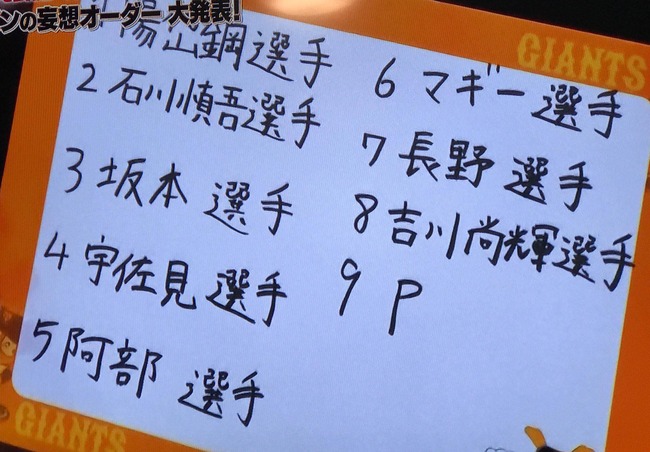 ンの妄想オーダー大発表!
GIANTS
陽岱鋼選手
2 石川慎吾選手
3 坂本 選手
4 宇佐見 選手
5 阿部 選手
6 マギー 選手
7 長野 選手
8 吉川尚輝選手
9 P
GIANTS